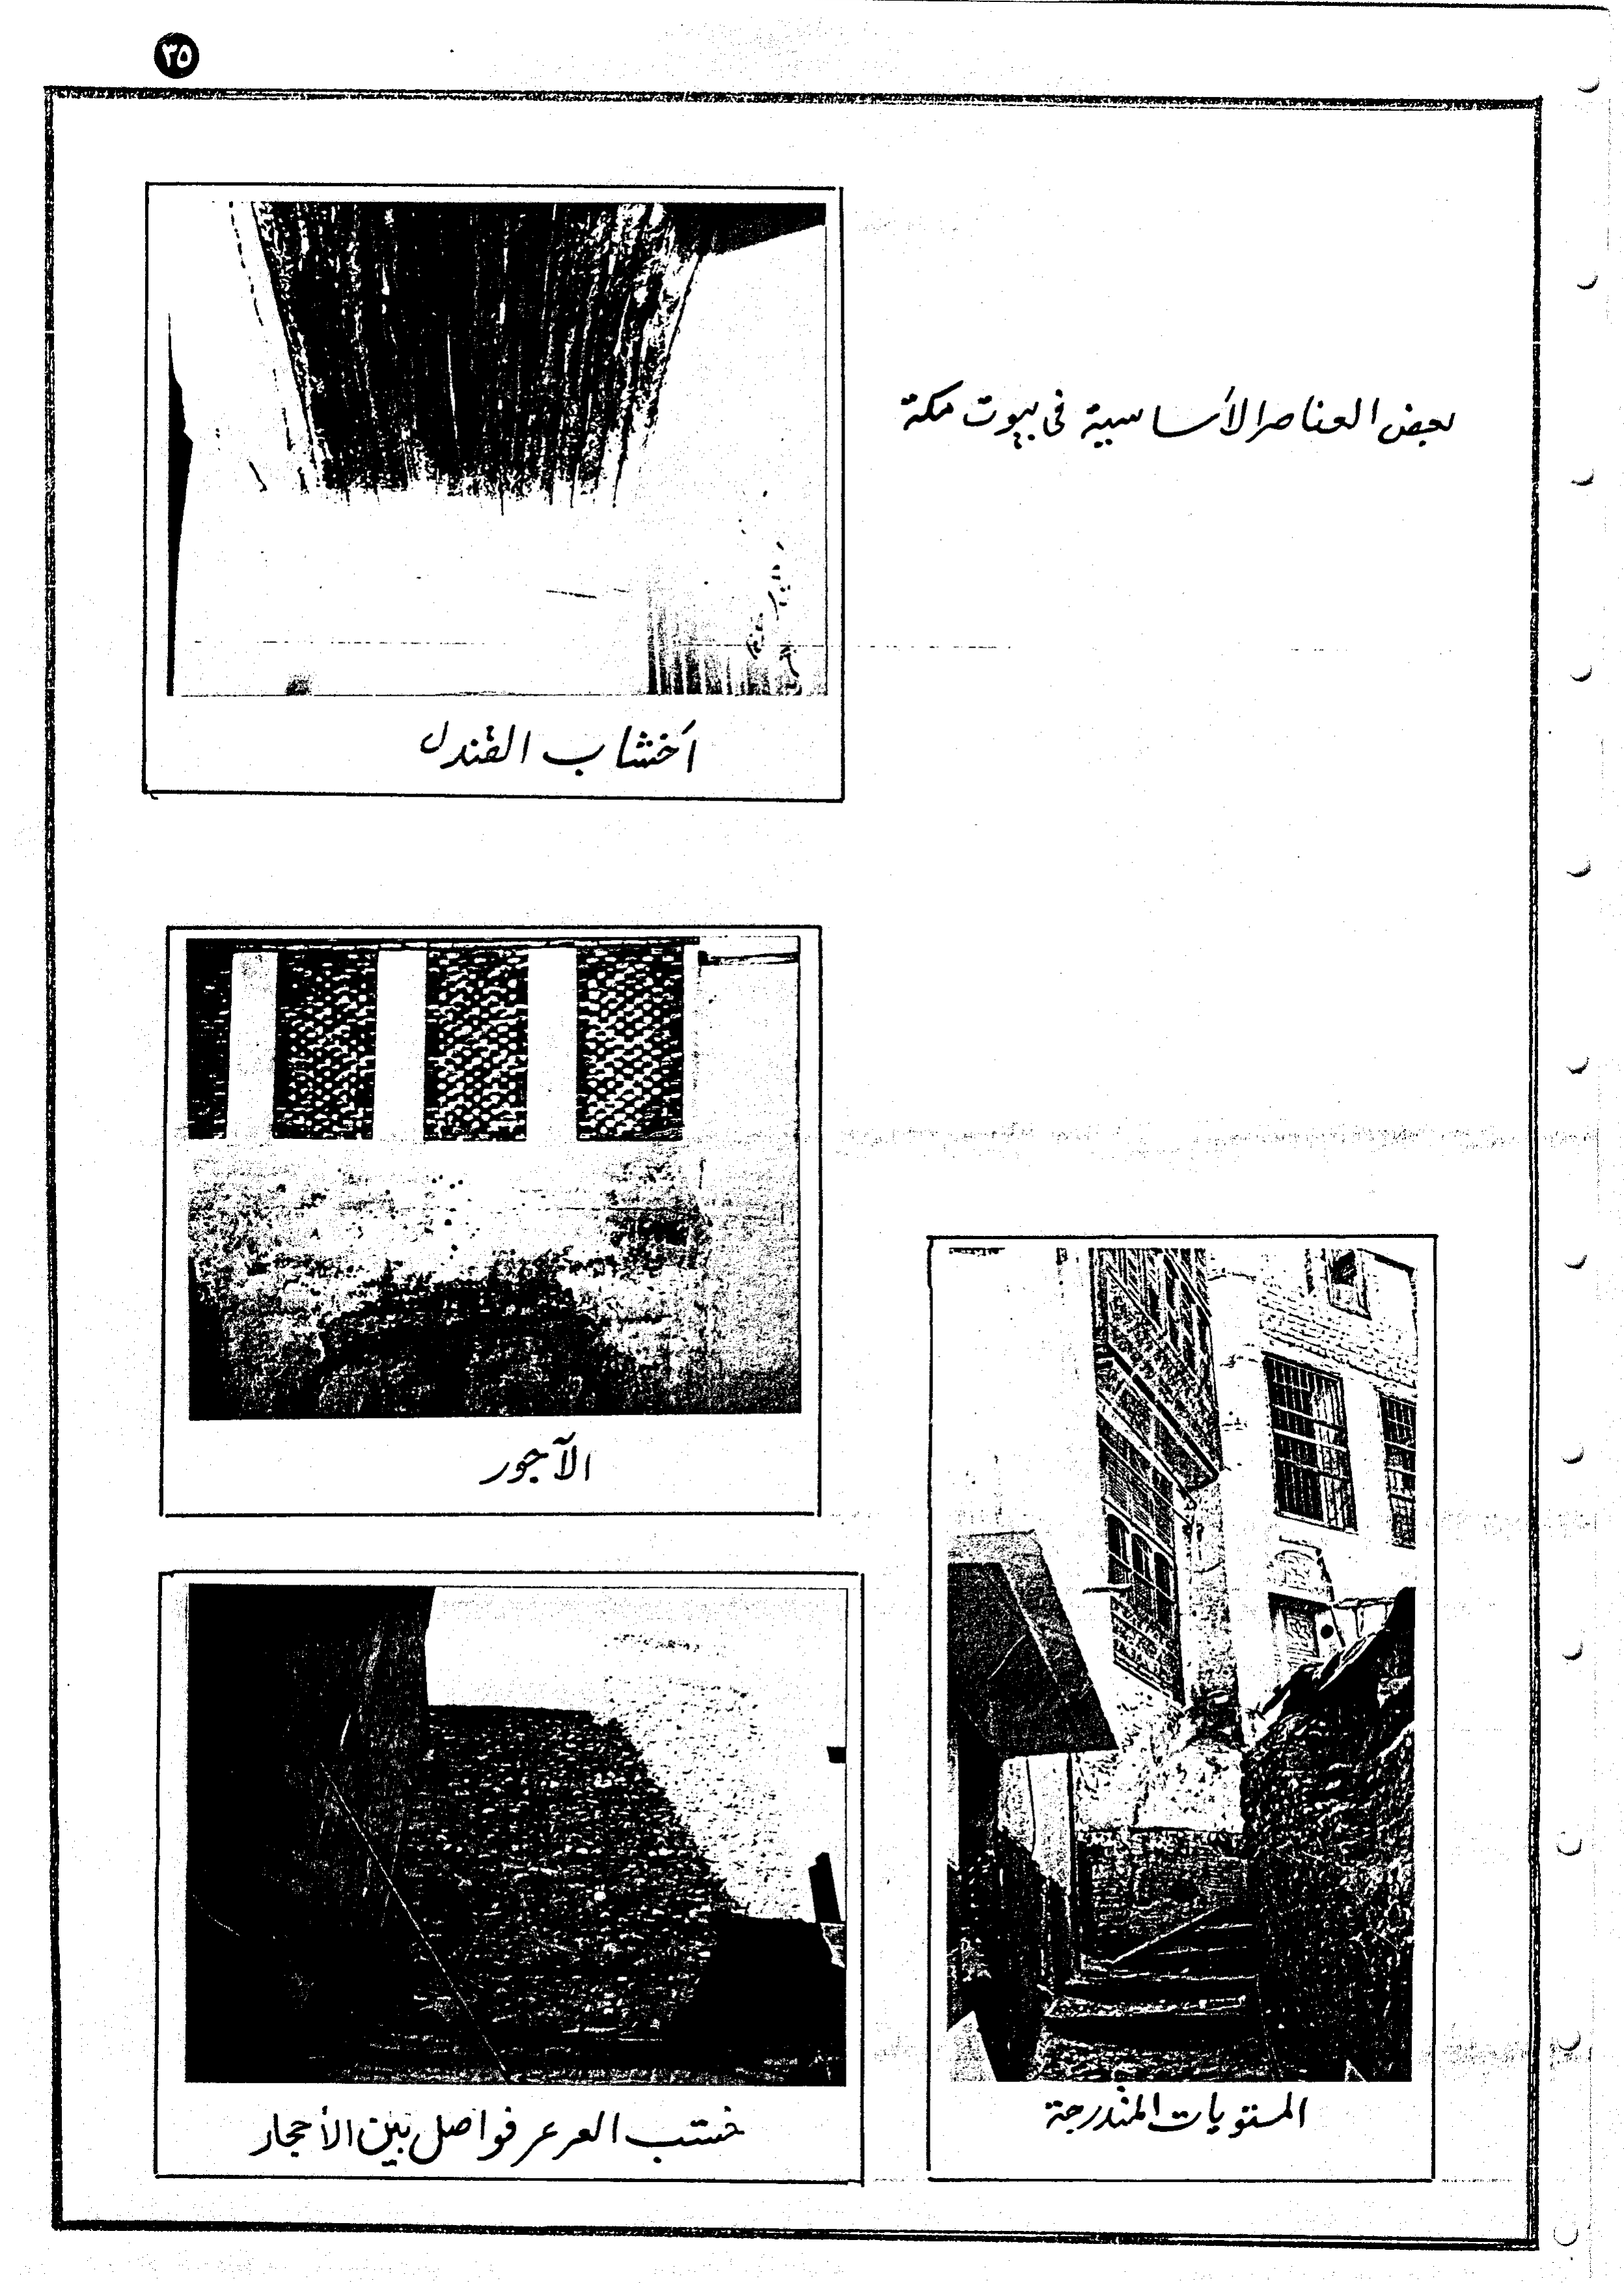 ٣٥
بعض العناصر الأساسية في بيوت مكة
أخشاب القندل
الآجور
المستويات المتدرجة
خشب العرعر فواصل بين الأحجار